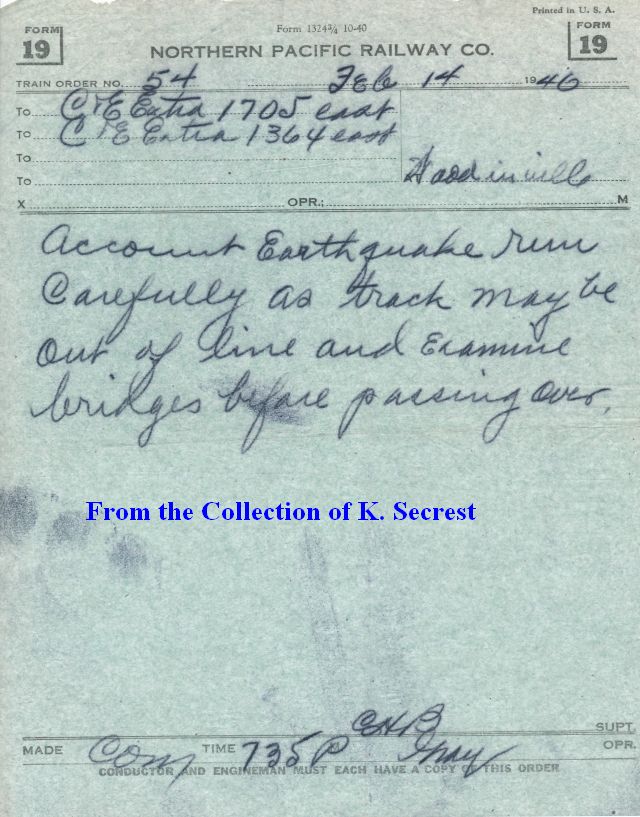 Printed in U. S. A.
FORM 19
Form 1324¾ 10-40
FORM 19
NORTHERN PACIFIC RAILWAY CO.
TRAIN ORDER NO. 54 Feb 14 1946
To C&E Extra 1705 east
To C&E Extra 1364 east
To
To Woodinville
X OPR.; M
Account Earthquake run
Carefully as track may be
out of line and Examine
bridges before passing over.
From the Collection of K. Secrest
CHB SUPT.
MADE Com TIME 735 P M Gray OPR.
CONDUCTOR AND ENGINEMAN MUST EACH HAVE A COPY OF THIS ORDER